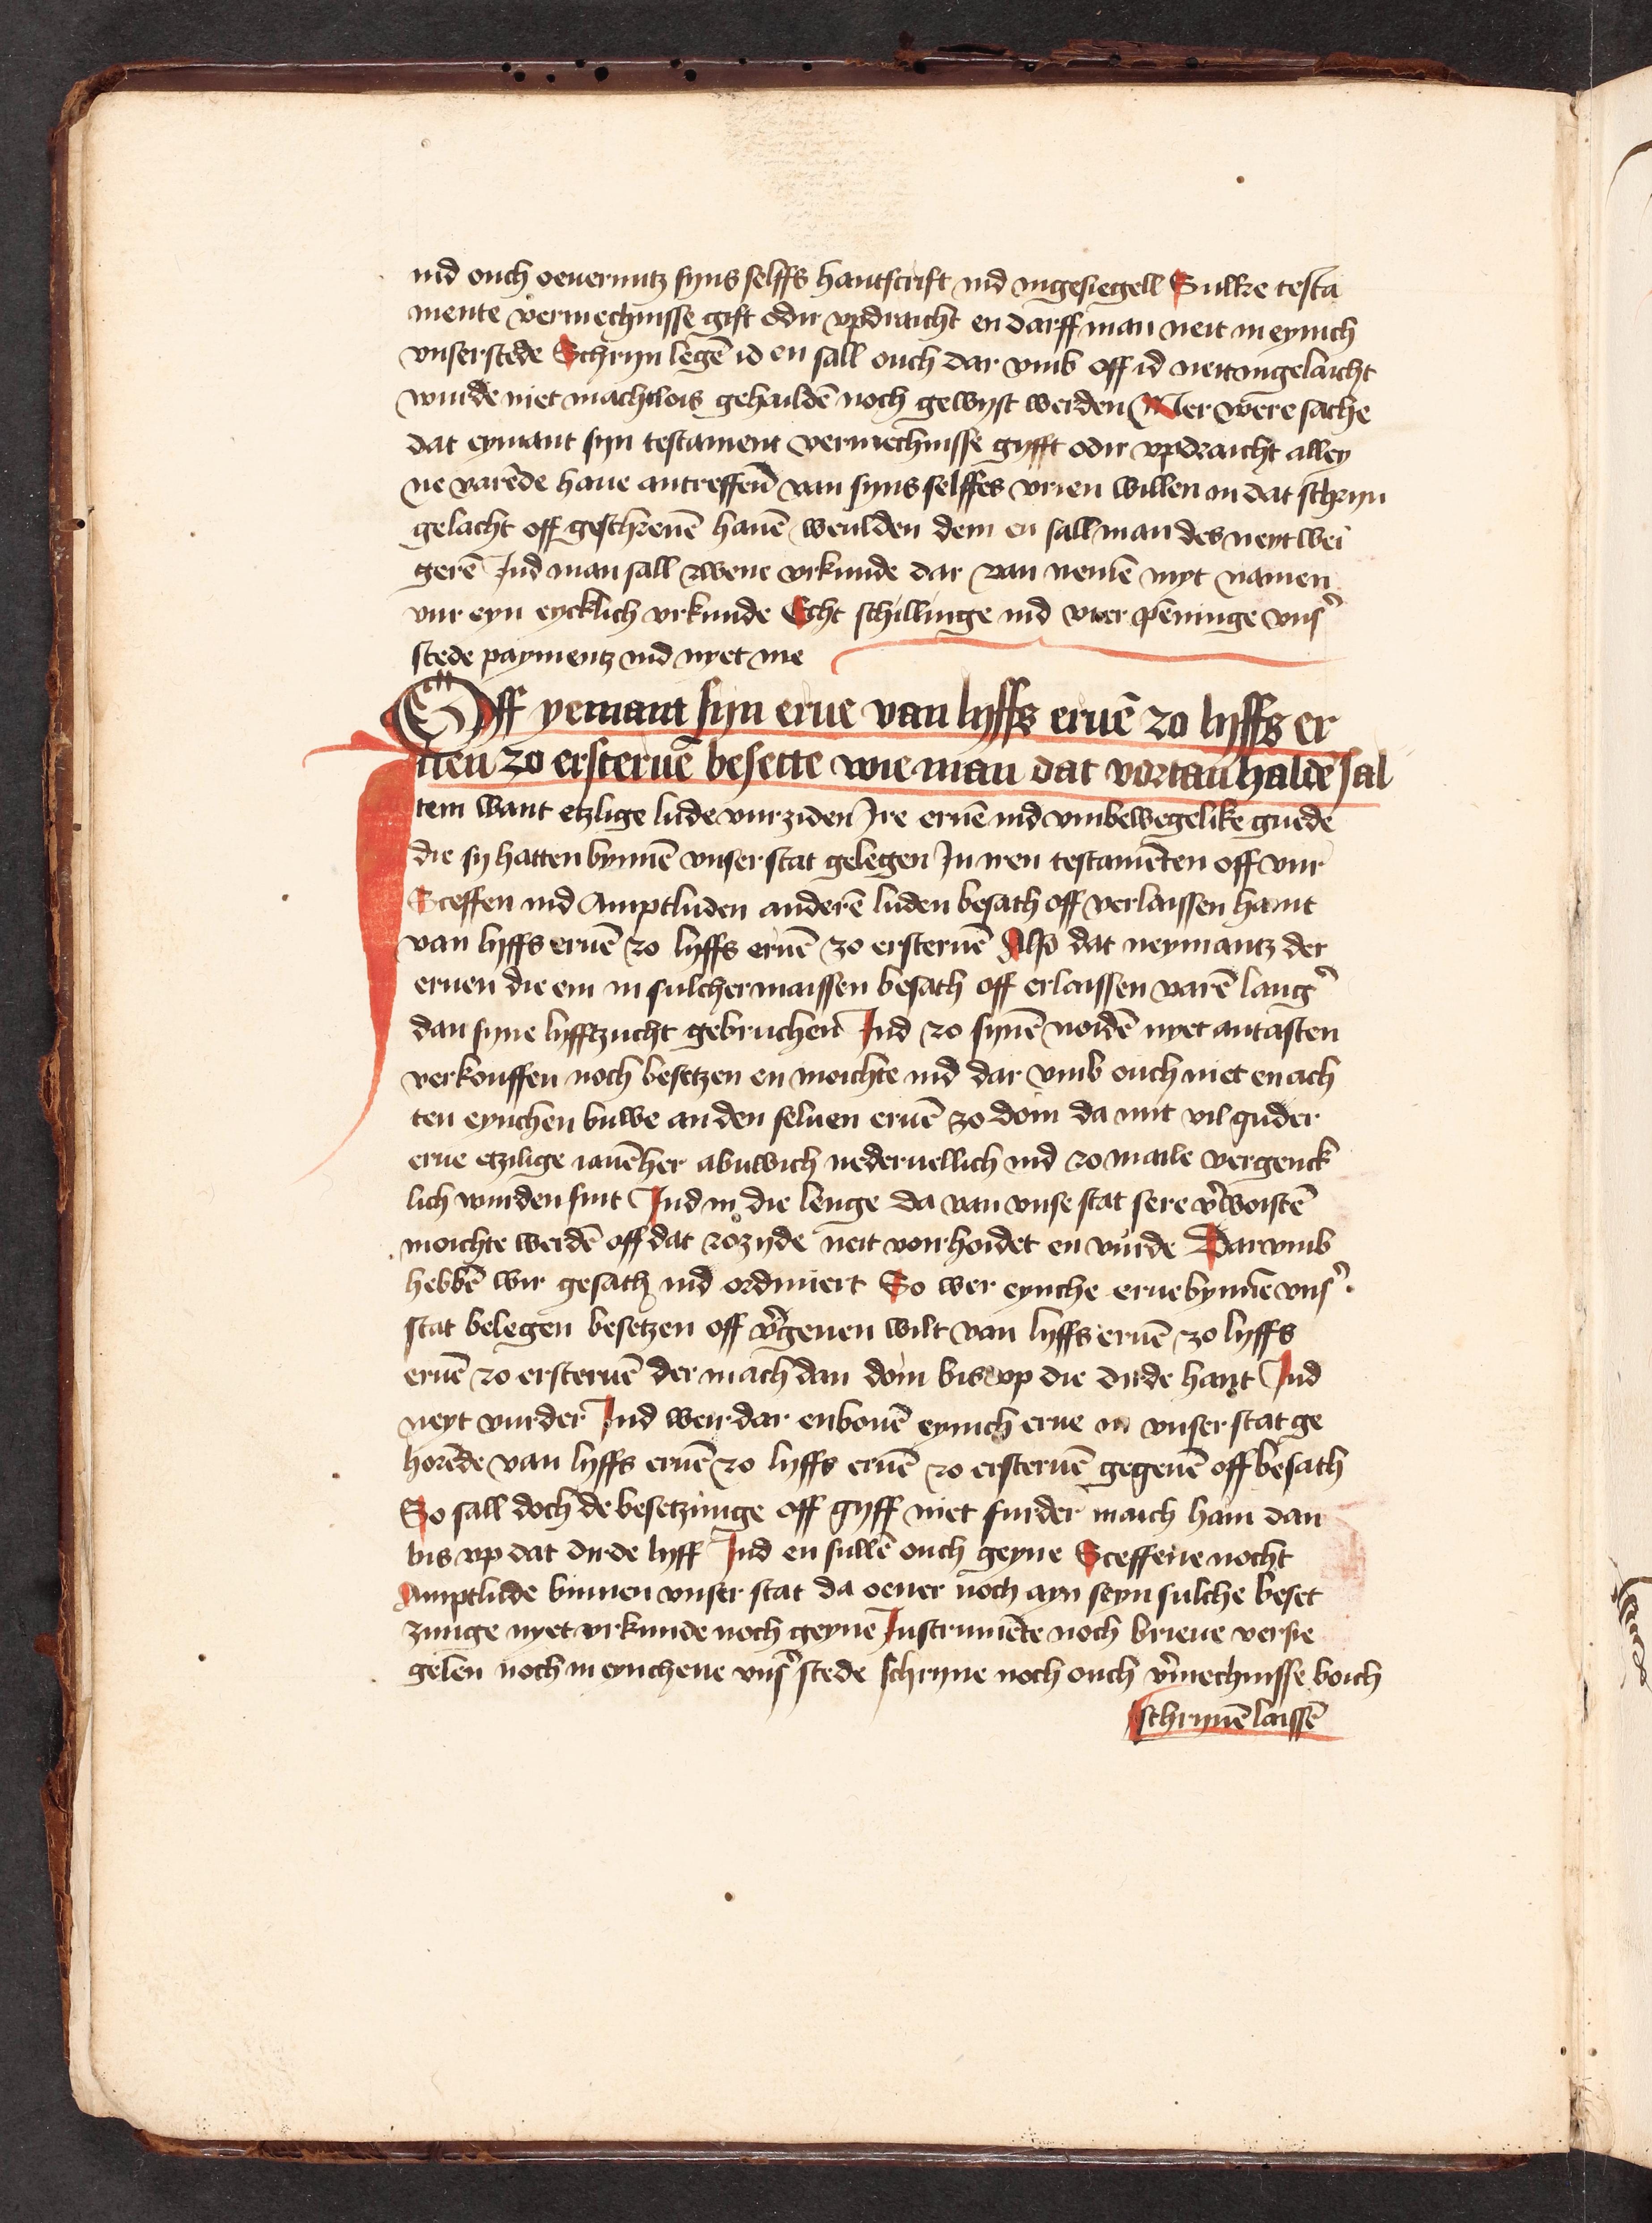 ind ouch oeuermitz syns selffs hantscrift ind ingesiegell Sulke testa
mente vermechnisse gift odir vpdraicht en darff man neit in eynich
vnser stede Schryn legē id en sall ouch dar vmb off id neit ingelaicht
wurde niet machtlois gehaildē noch gewyst werden Mer were sache
dat eymant syn testament vermechnisse gyfft odir vpdraicht alley
ne varēde haue antreffen̄ van syns selffes vrien willen in dat schryn
gelacht off geschreuē hauē weulden dem en sall man des neyt wei
gerē Ind man sall zwene vrkunde dar van nemē myt namen
vur eyn eycklich vrkunde Echt schillinge ind vier pēninge vns̉
stede paymentz ind nyet me
Off yemant syn erue van lyffs eruē zo lyffs er
uen zo ersteruē besette wie man dat vortan haldē sal
Item want etzlige lude vurziden Ire eruē ind vmbewegelike guede
die sy hatten bynnē vnser stat gelegen In iren testamēten off vur
Sceffen ind Amptluden anderē luden besath off verlaissen haint
van lyffs eruē zo lyffs eruē zo ersteruē Also dat neymantz der
eruen die em in sulcher maissen besath off erlaissen varē lang̉
dan syne lyfftzucht gebruchen Ind zo synē noidē nyet antasten
verkouffen noch besetzen en moichte ind dar vmb ouch niet en ach
ten eynchen buwe an den seluen eruē zo doin da mit vil guder
erue etzilige iauē her abuwich nederuellich ind zo maile vergenck
lich wurden sint Ind in die lenge da van vnse stat sere v̉woistē
moichte werdē off dat zozyde neit vorhoidet en vurde Darvmb
hebbē wir gesath ind ordiniert So wer eynche erue bynnē vns̉
stat belegen besetzen off v̉geuen wilt van lyffs eruē zo lyffs
eruē zo ersteruē der mach dan doin bis vp die dirde hant Ind
neyt vurder Ind weir dar enbouē eynich erue in vnser stat ge
horēde van lyffs eruē zo lyffs eruē zo ersteruē gegeuē off besath
So sall doch de besetzunge off gyff niet furder maich hain dan
bis vp dat dirde lyff Ind en sullē ouch geyne Sceffene nocht
Amptlude binnen vnser stat da oeuer noch ayn seyn sulche beset
zunge nyet vrkunde noch geyne Instrumēte noch brieue versie
gelen noch in eynchene vns̉ stede schryne noch ouch v̉mechnisse boich
schryuē laissē